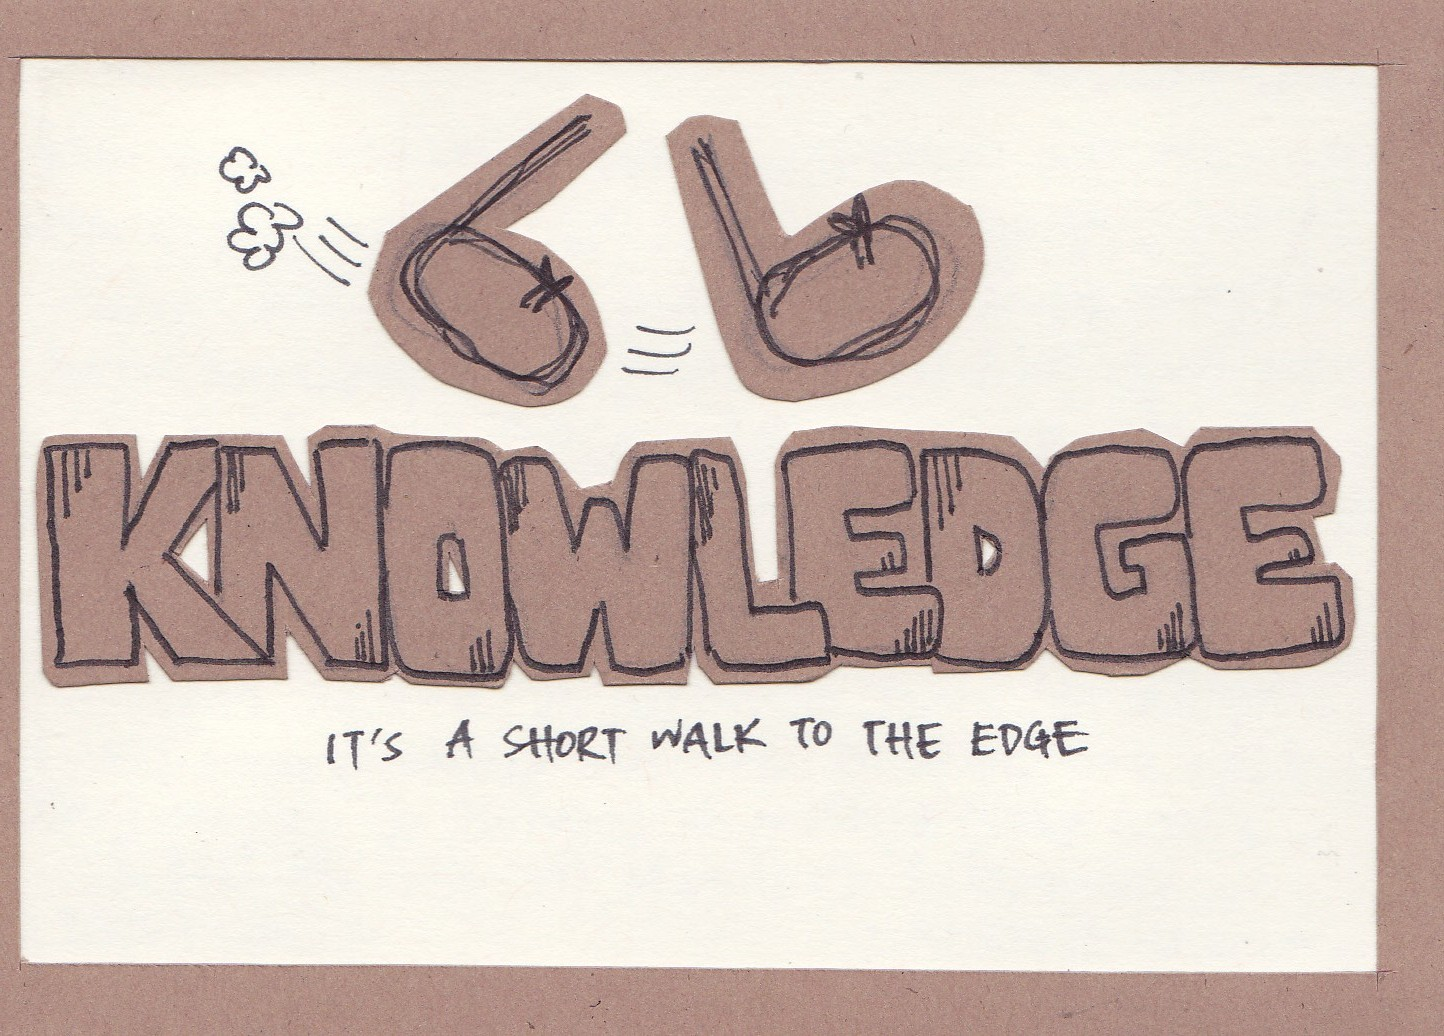 KNOWLEDGE
IT'S A SHORT WALK TO THE EDGE